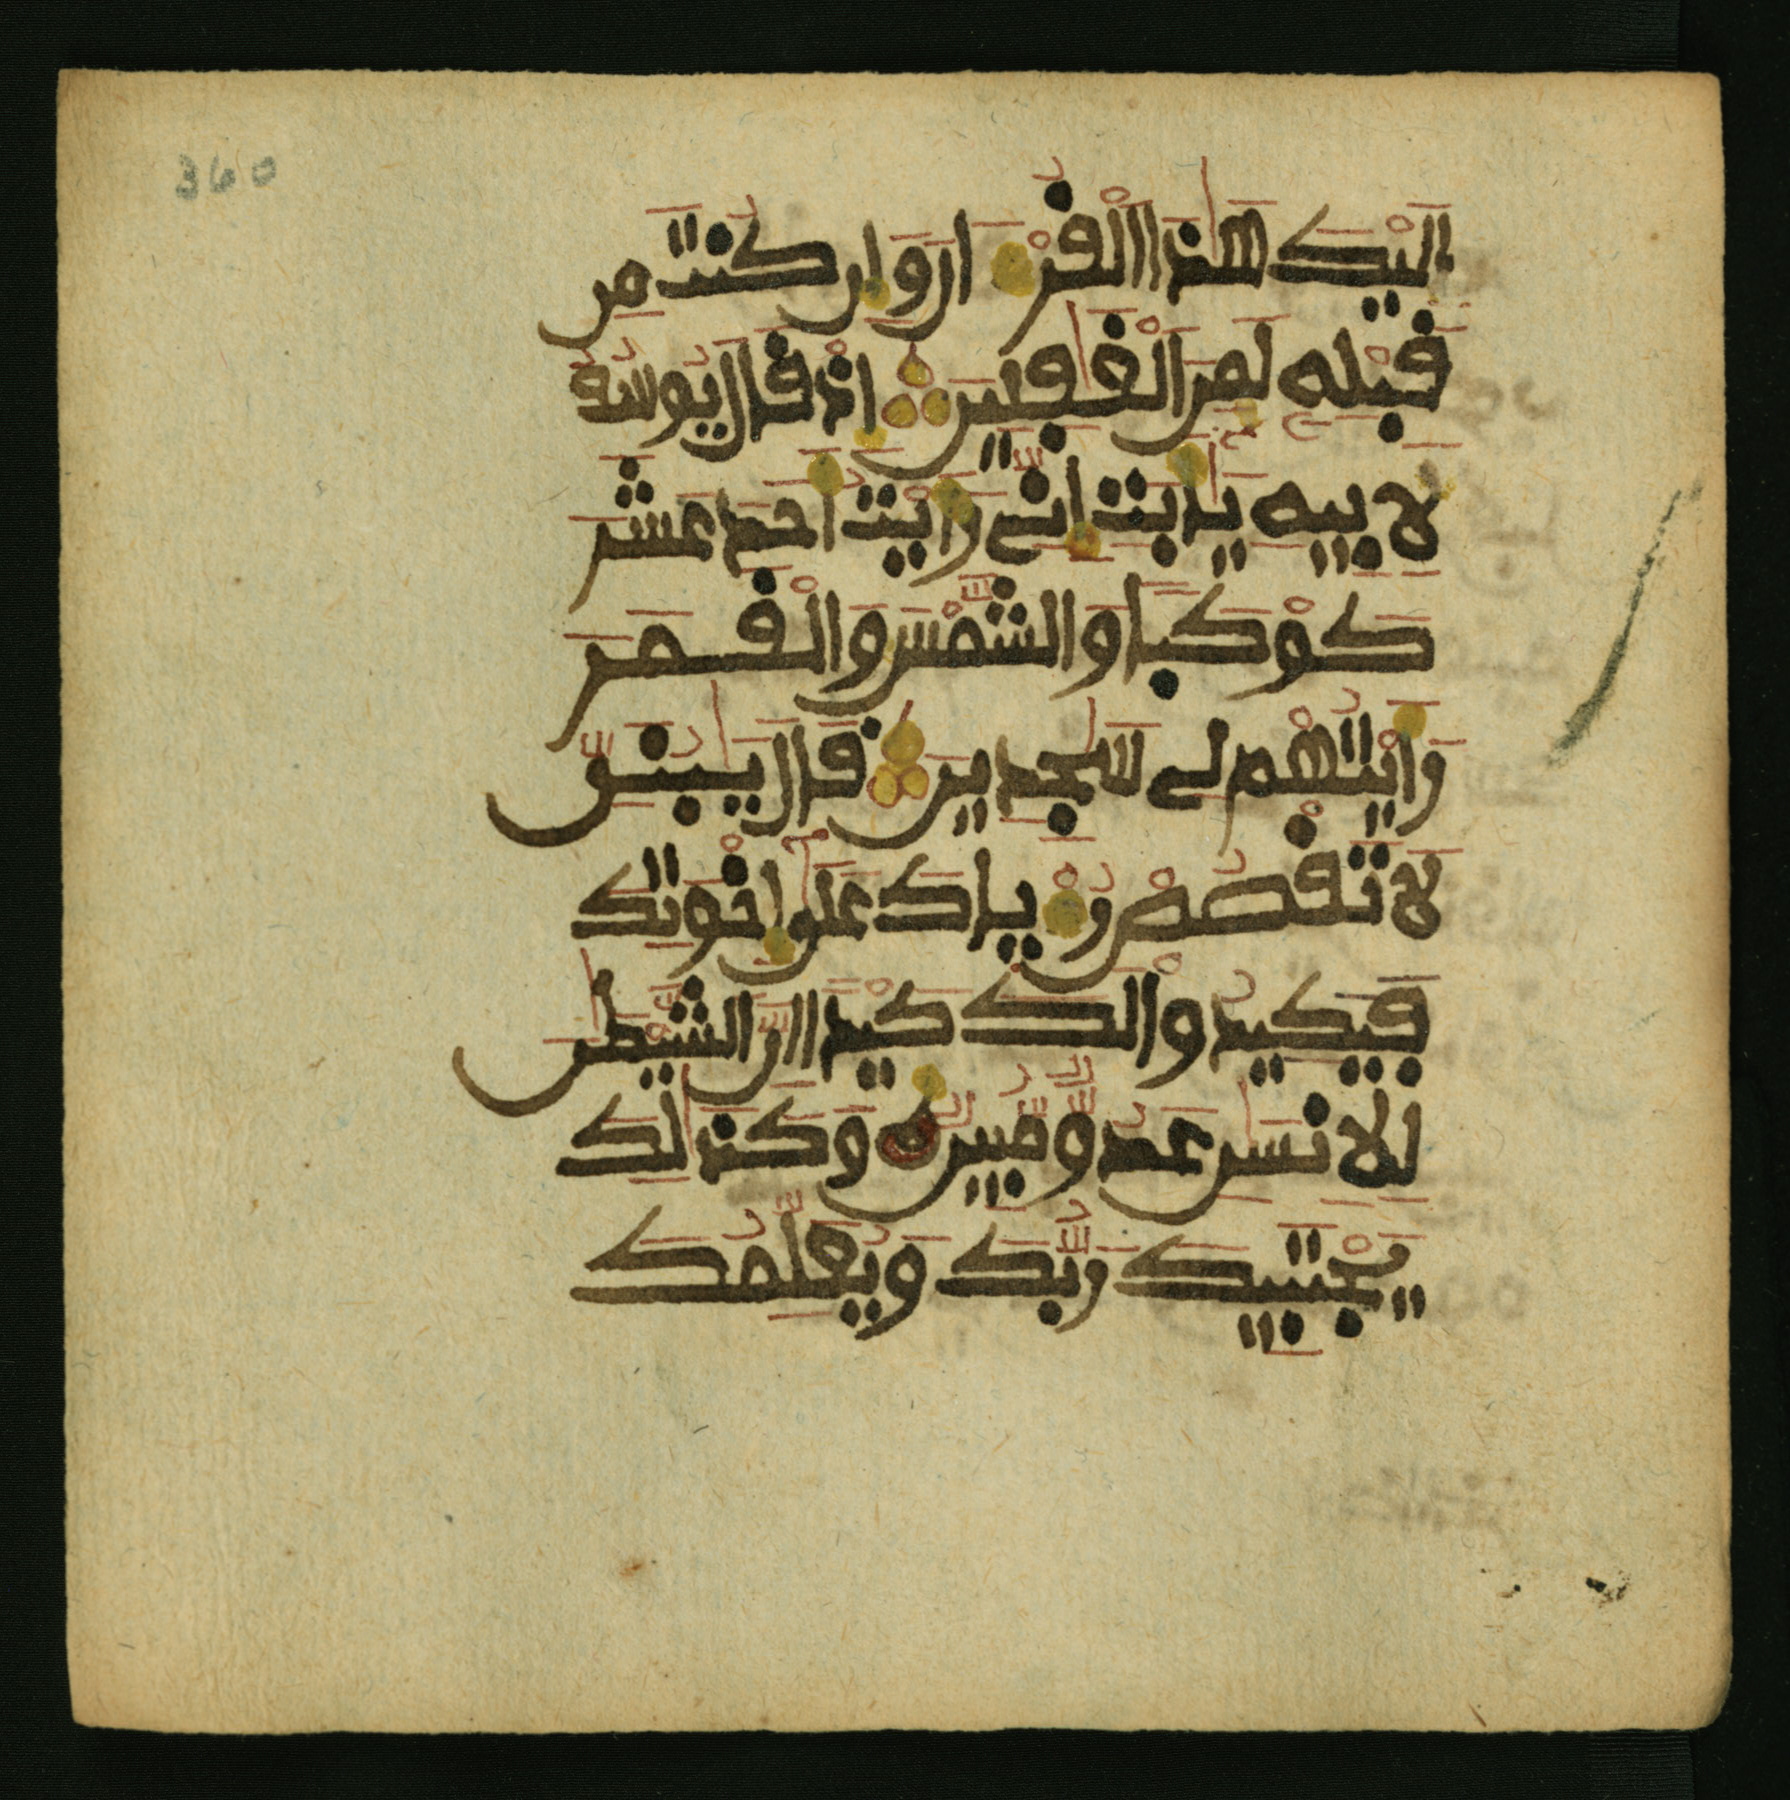 360
اليك هذا القرءان وإن كنت من
قبله لمن الغفلين إذ قال يوسف
لأبيه يأبت إني رأيت أحد عشر
كوكبا والشمس والقمر
رأيتهم لي سجدين قال يبني
لا تقصص رءياك على إخوتك
فيكيدوا لك كيدا إن الشيطن
للإنسن عدو مبين وكذلك
يجتبيك ربك ويعلمك